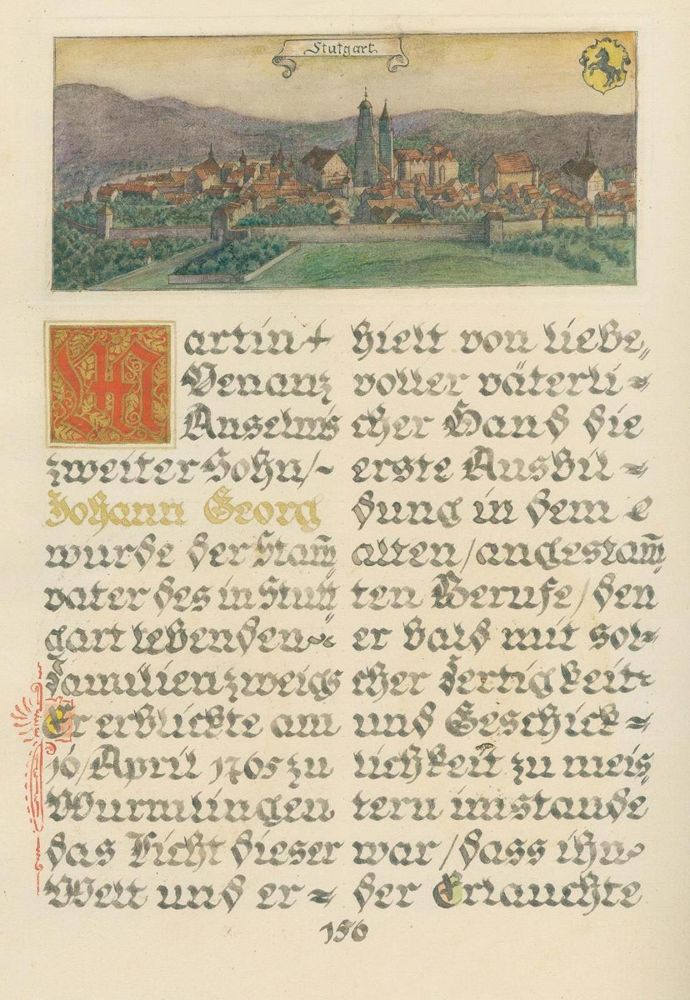 Stutgart
Martin
Venanz
Anselms
zweiter Sohn/-
Johann Georg
wurde der Stam̄
vater des in Stutt
gart lebenden
Familienzweigs
Er erblickte am
16/April 1765 zu
Wurmlingen
das Licht dieser
Welt und er=
hielt von liebe,,
voller väterli=
cher Hand die
erste Ausbil=
dung in dem
alten/angestam̄
ten Berufe/den
er bald mit sol=
cher Fertigkeit
und Geschick=
lichkeit zu meis,,
tern imstande
war/dass ihn
der Erlauchte
156